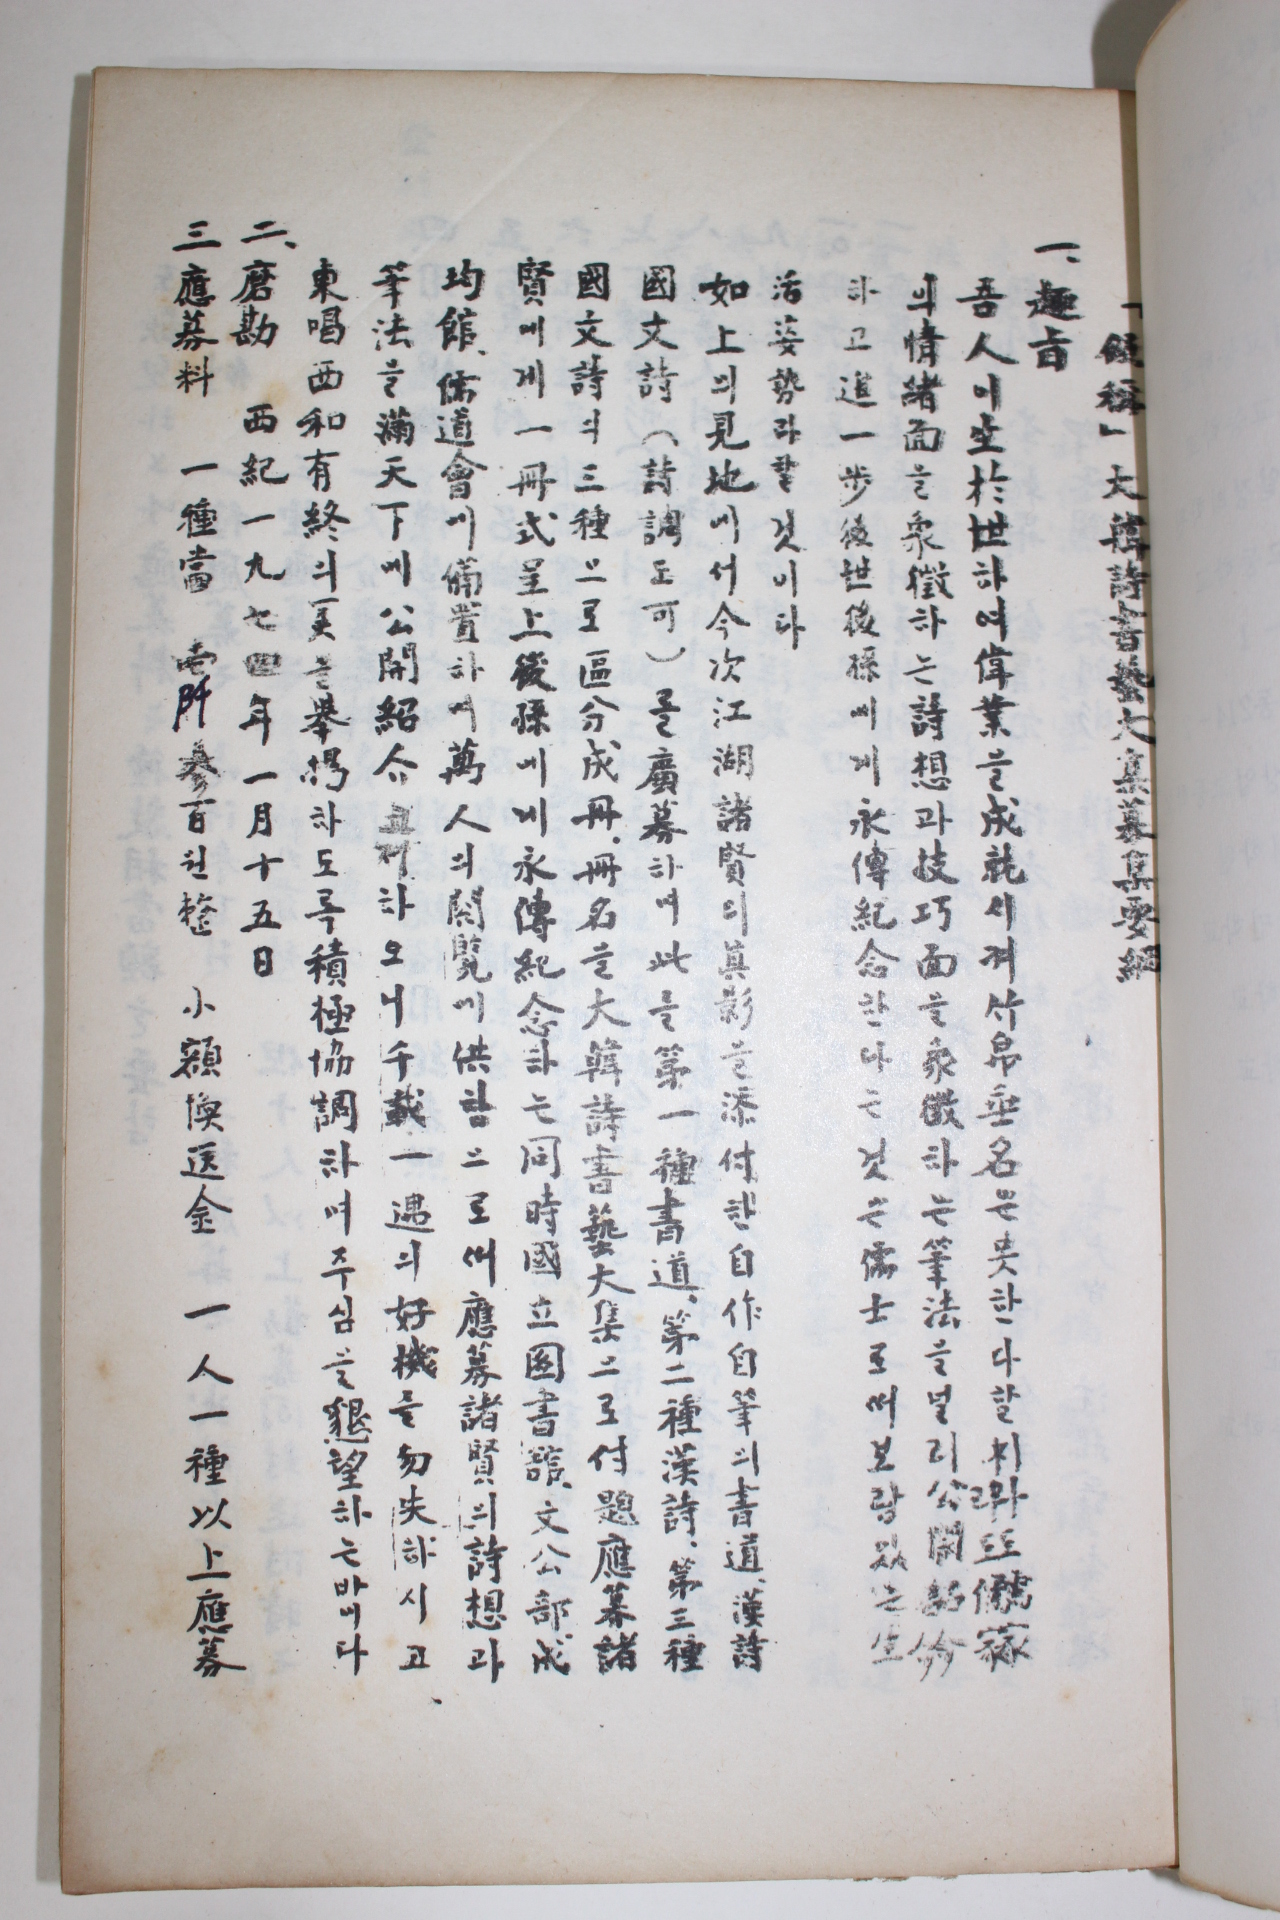 「假稱」大韓詩書藝大集募集要綱
一、趣旨
吾人이生於世하여偉業을成就시켜竹帛垂名은못한다할지라도儒家
의情緖面을象徵하는詩想과技巧面을象徵하는筆法을널리公開紹介
하고進一步後世後孫에게永傳紀念한다는것은儒士로써보람있는生
活姿勢라할것이다
如上의見地에서今次江湖諸賢의眞影을添付한自作自筆의書道、漢詩
國文詩(詩調도可)를廣募하여此을第一種書道、第二種漢詩、第三種
國文詩의三種으로區分成冊、冊名을大韓詩書藝大集으로付題應募諸
賢에게一冊式呈上後孫에게永傳紀念하는同時國立圖書舘、文公部、成
均館、儒道會에備置하여萬人의閱覽에供함으로써應募諸賢의詩想과
筆法을滿天下에公開紹介 하오니千載一遇의好機을勿失하시고
東唱西和有終의美을擧揚하도록積極協調하여주심을懇望하는바이다
二、磨勘 西紀一九七四年一月十五日
三 應募料 一種當 阡參百원整 小額換送金 一人一種以上應募